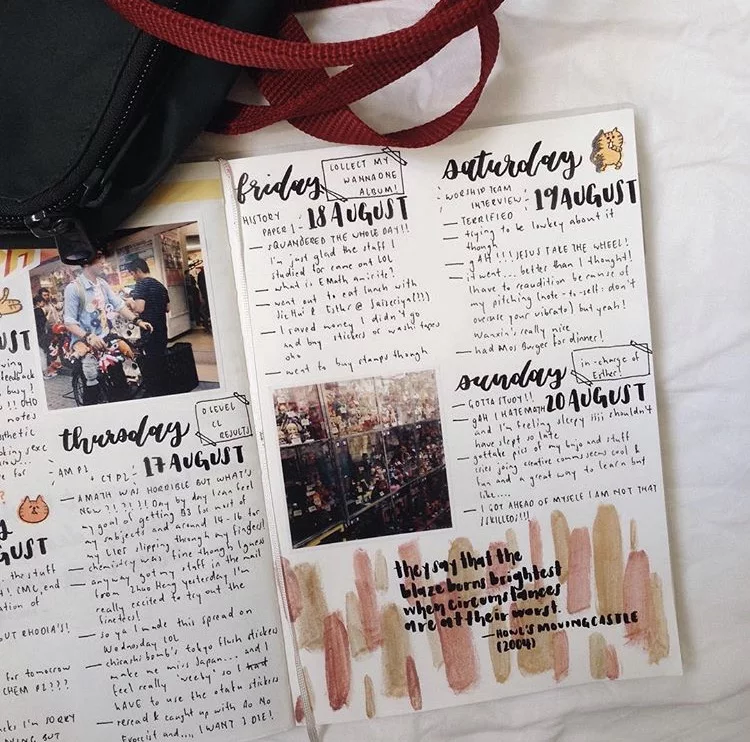 UST
wing
feedback
busy!
!! OHO
notes
sthetic
oking sexc
now...
e for
?
GUST
the stuff
H! CMC, end
ation of
OUT RHODIA'S!
for tomorrow
CHEM P2???
acks I'm SORRY
AVING, BUT
thursday
O LEVEL
CL
RESULTS
AM P1
+ CY P2
17 AUGUST
— AMATH WAS HORRIBLE BUT WHAT'S
NEW?!?!?! Day by day I can feel
my goal of getting B3 for most of
my subjects and around 14-16 for
my L1R5 slipping through my fingers!
— chemistry was fine though I guess
— anyway got my stuff in the mail
from Zhao Heng yesterday I'm
really excited to try out the
finetecs!
— so ya I made this spread on
Wednesday LOL
— chirashi bomb's tokyo flush stickers
make me miss Japan... and I
feel really 'weeby' so I had
HAVE to use the otaku stickers
— reread & caught up with Ao No
Exorcist and..., I WANT 2 DIE!
friday
COLLECT MY
WANNAONE
ALBUM!
HISTORY
PAPER 1
18 AUGUST
— SQUANDERED THE WHOLE DAY!!
I'm just glad the stuff I
studied for came out LOL
— what is EMath amirite?
— went out to eat lunch with
& Esther @ Saizeriya(???)
— I saved money I didn't go
and buy stickers or washi tapes
oho
— went to buy stamps though
saturday
WORSHIP TEAM
INTERVIEW
19 AUGUST
— TERRIFIED
— trying to be lowkey about it
though
— gAH!!! JESUS TAKE THE WHEEL!
— it went... better than I thought!
I have to reaudition because of
my pitching (note-to-self: don't
overuse your vibrato) but yeah!
Wanxin's really nice
— had Mos Burger for dinner!
sunday
in-charge of
Esther!
20 AUGUST
— GOTTA STUDY!!
— gAH I HATE MATH
and I'm feeling sleepy iiii shouldn't
have slept so late
— gottake pics of my bujo and stuff
cries joing creative comms seems cool &
fun and a great way to learn but
like....
— I GOT AHEAD OF MYSELF I AM NOT THAT
SSKILLED!!!
they say that the
blaze burns brightest
when circumstances
are at their worst.
— HOWL'S MOVING CASTLE
(2004)